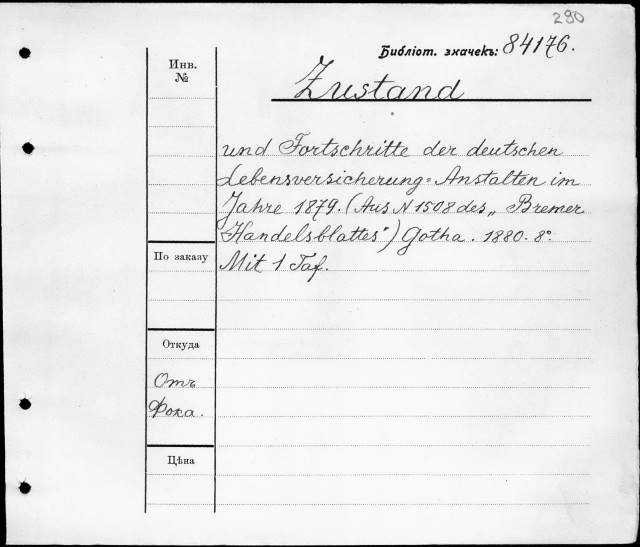 290
Библіот. значекъ: 84176.
Инв.
№
Zustand
und Fortschritte der deutschen
Lebensversicherung=Anstalten im
Jahre 1879. (Aus N 1508 des „Bremer
Handelsblattes") Gotha. 1880. 8°.
По заказу
Mit 1 Taf.
Откуда
Отъ
Фока.
Цѣна